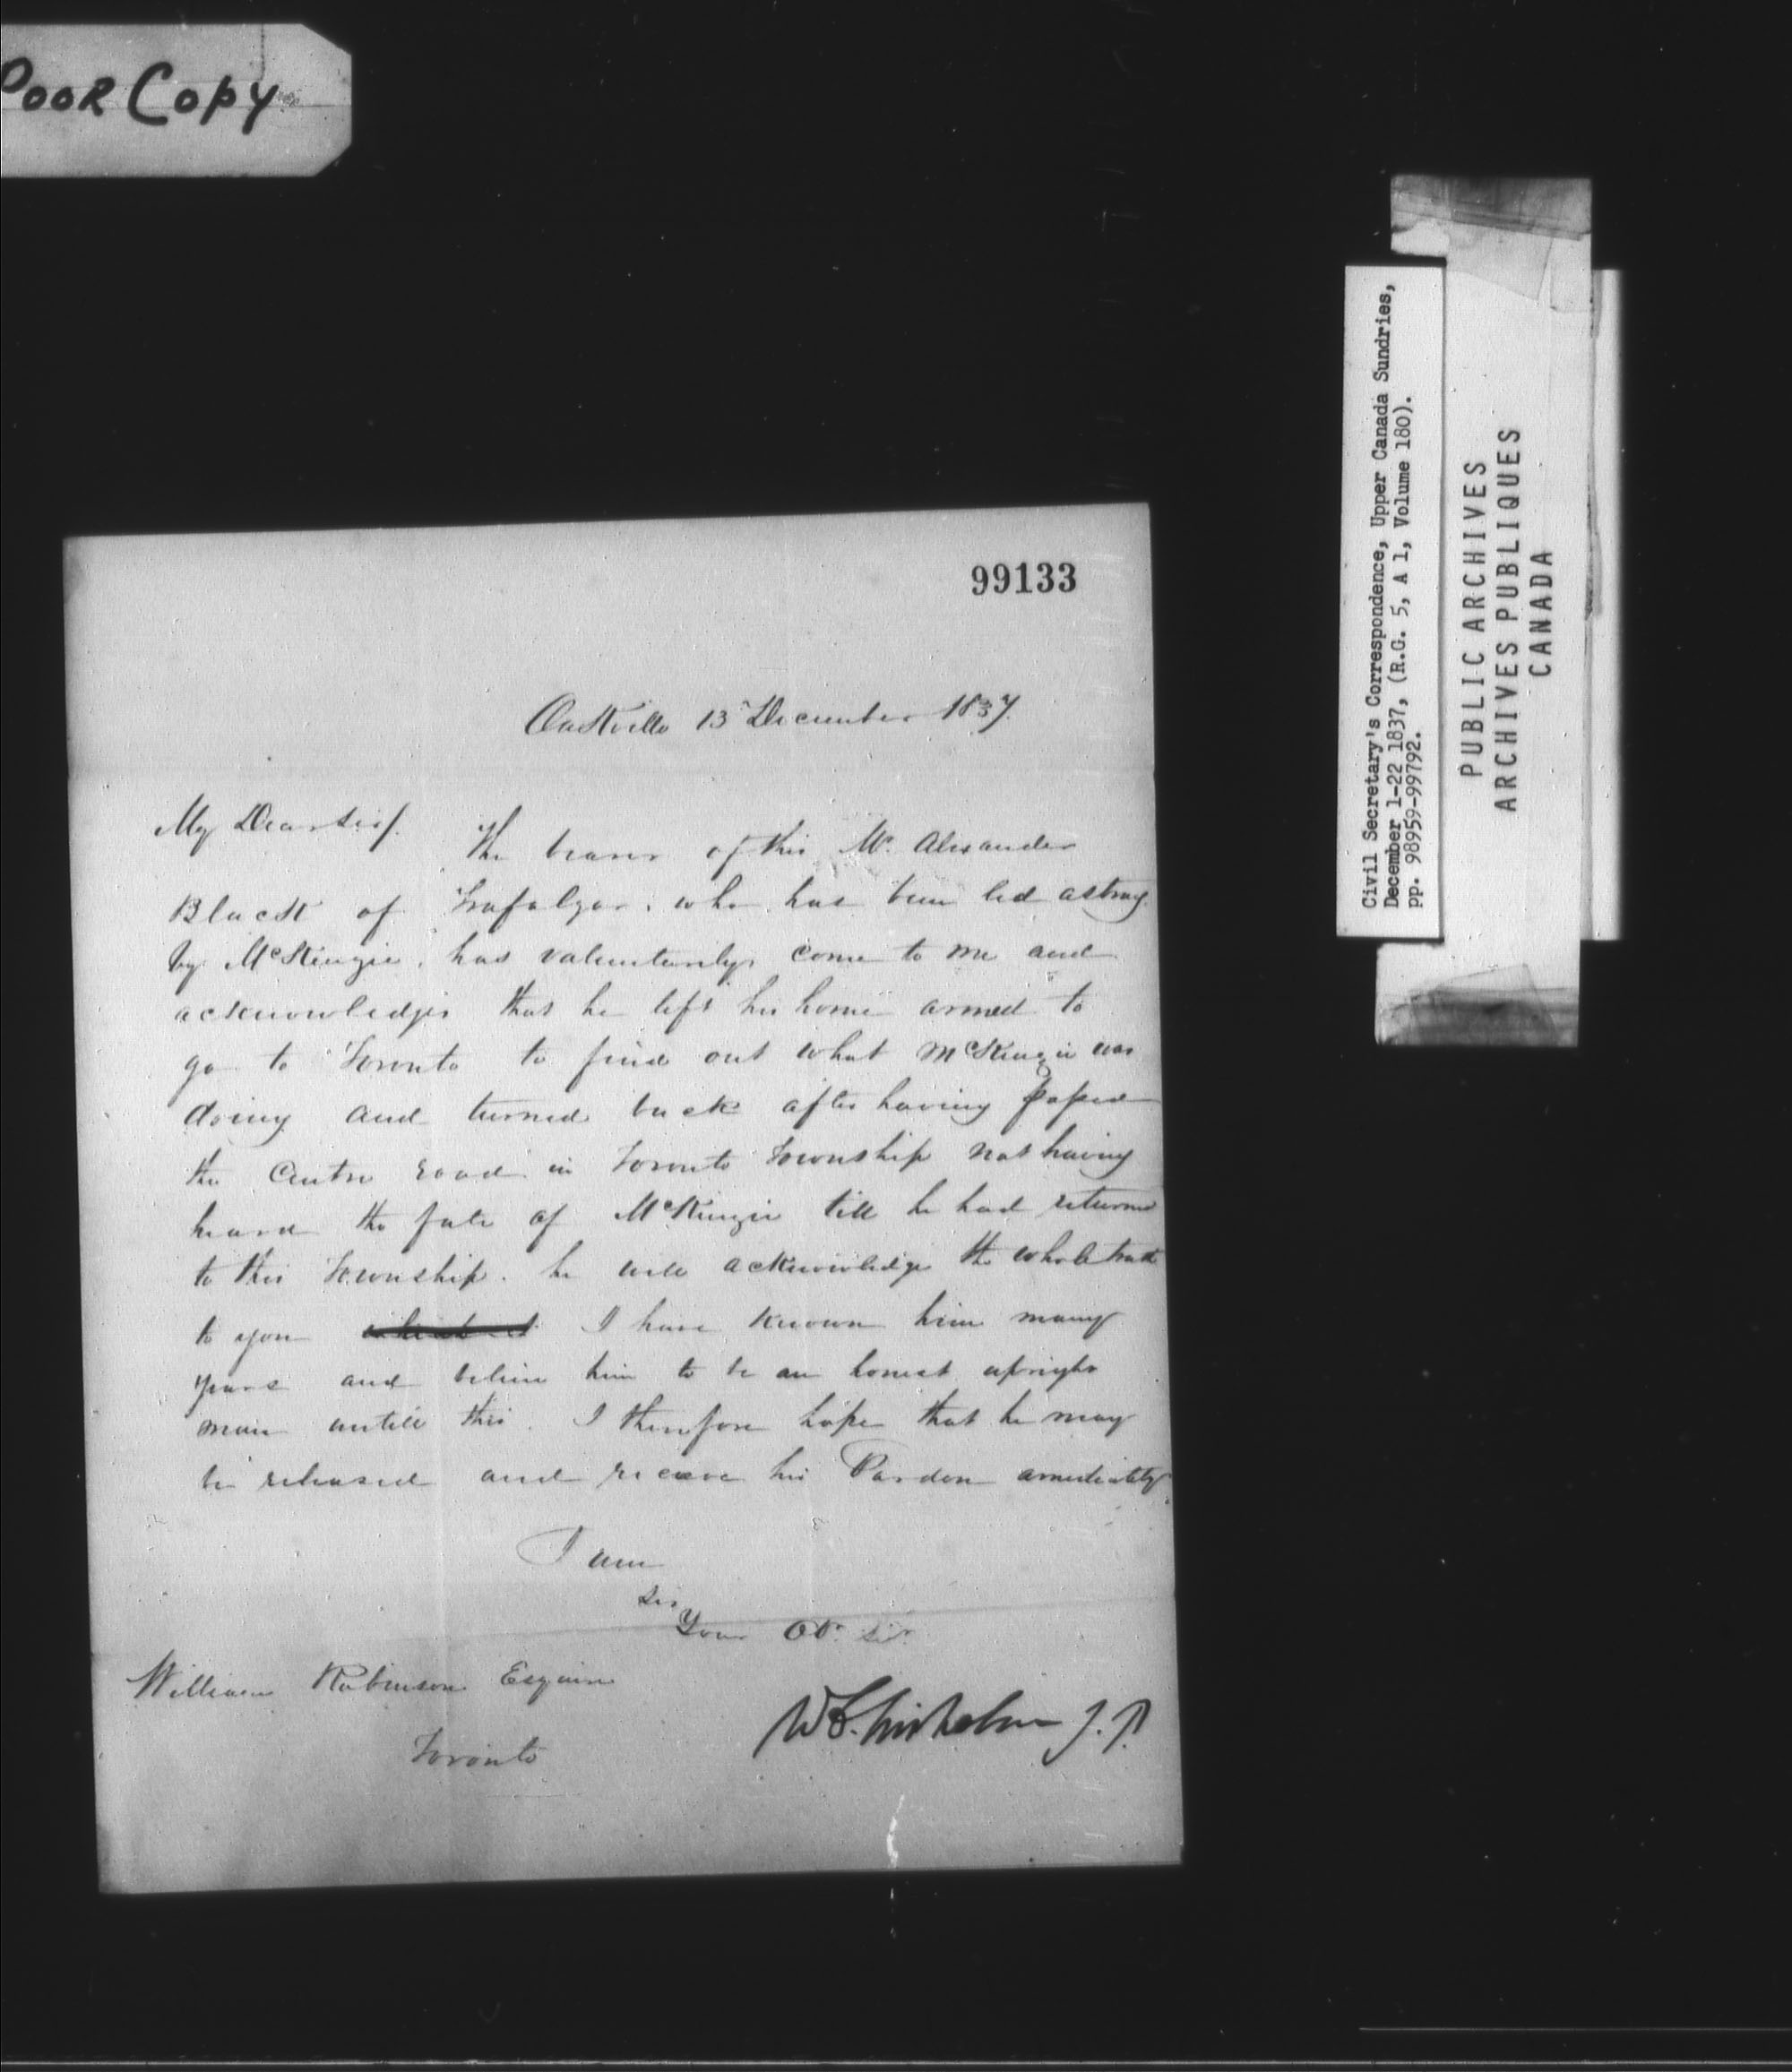 Poor Copy
99133
Oakville 13 December 1837.
My Dear Sir/. The bearer of this Mr. Alexander
Black of Trafalgar, who has been led astray
by McKenzie, has valuntarily come to me and
acknowledges that he left his home armed to
go to Toronto to find out what McKenzie was
doing and turned back after having passed
the Centre road in Toronto Township not having
heard the fate of McKenzie till he had returned
to this Township. he will acknowledge the whole truth
to you I have known him many
years and believe him to be an honest upright
man untill this. I therefore hope that he may
be released and receive his Pardon amediately
I am
Sir
Your Obt. Sert.
William Robinson Esquire
Toronto
W Chisholm J.P.
Civil Secretary's Correspondence, Upper Canada Sundries,
December 1-22 1837, (R.G. 5, A 1, Volume 180).
pp. 98959-99792.
PUBLIC ARCHIVES
ARCHIVES PUBLIQUES
CANADA